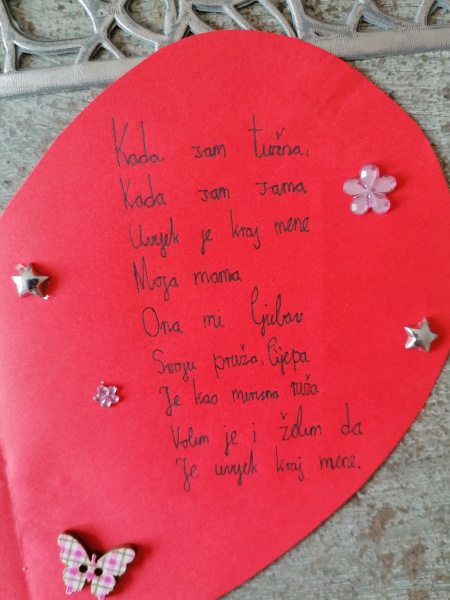 Kada sam tužna,
Kada sam sama
Uvijek je kraj mene
Moja mama.
Ona mi ljubav
Svoju pruža, lijepa
Je kao mirisna ruža.
Volim je i želim da
Je uvijek kraj mene.